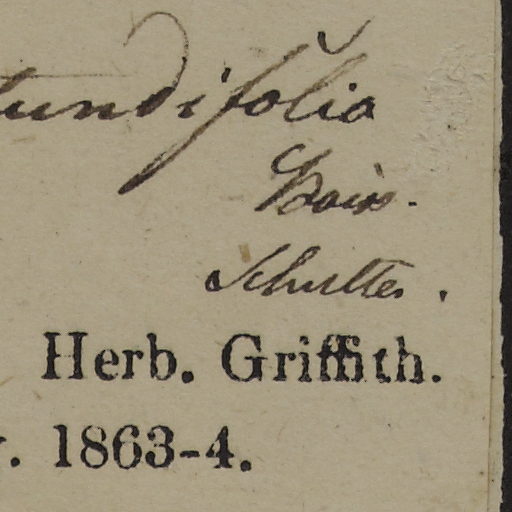 tundifolia
Boiss.
Schultes.
Herb. Griffith.
. 1863-4.